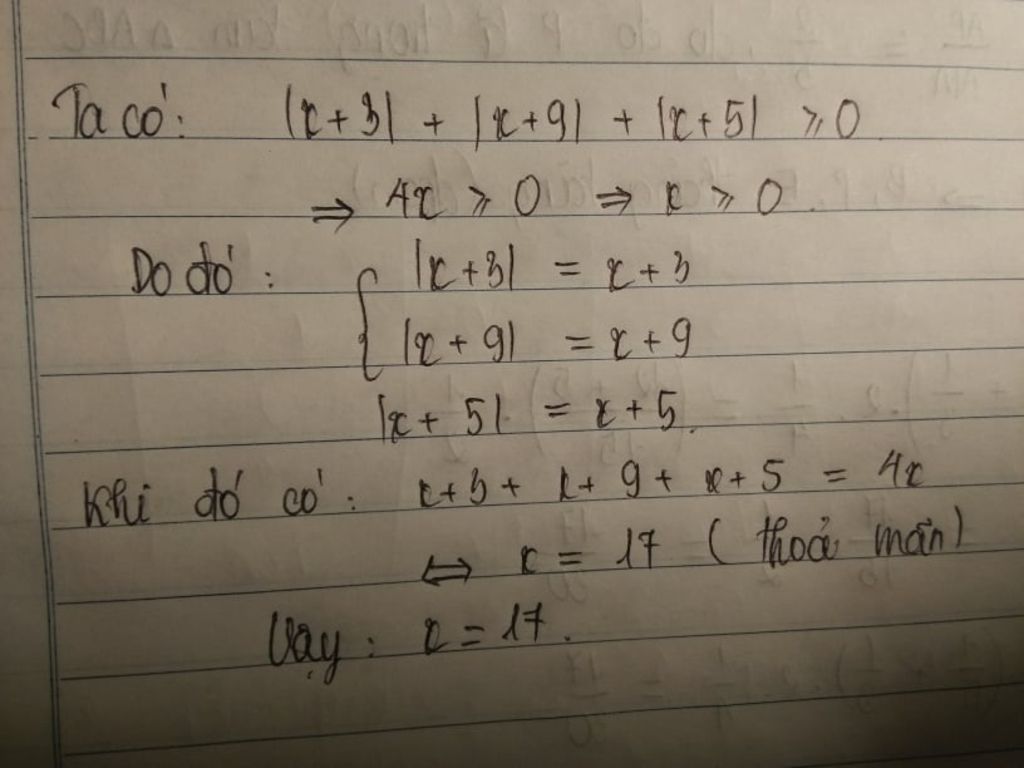 Ta có: |x+3| + |x+9| + |x+5| ⩾ 0
⇒ 4x ⩾ 0 ⇒ x ⩾ 0
Do đó: { |x+3| = x+3
|x+9| = x+9
|x+5| = x+5.
Khi đó có: x+3+ x+9+ x+5 = 4x
⇔ x = 17 (thoả mãn)
Vậy: x = 17.